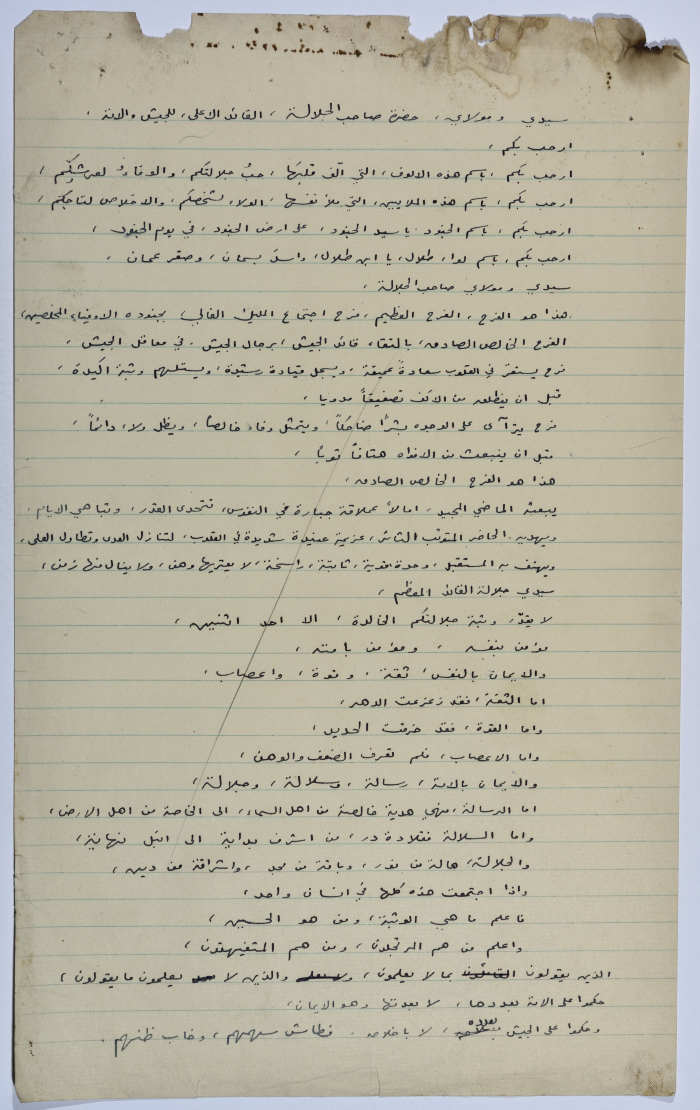 سيدي ومولاي، حضرة صاحب الجلالة، القائد الاعلى، للجيش والامة،
ارحب بكم،
ارحب بكم، باسم هذه الالوف، التي الّف قلبَها، حبُ جلالتكم، والوفاءُ لعرشِكم،
ارحب بكم، باسم هذه الملايين، التي ملأ نفسَها، الولاء لشخصكم، والاخلاص لتاجكم،
ارحب بكم، باسم الجنود، يا سيد الجنود، على ارض الجنود، في يوم الجنود،
ارحب بكم، باسم لواء طلال، يا ابن طلال، واسدَ بسمان، وصقر عمان،
سيدي ومولاي صاحب الجلالة،
هذا هو الفرح، الفرح العظيم، فرح اجتماع المليك الغالي، بجنوده الاوفياء المخلصين،
الفرح الخالص الصادق، بالتقاء قائد الجيش، برجال الجيش، في معاقل الجيش،
فرح يستقر في القلوب سعادةً عميقة، ويسجل قيادة رشيدة، ويستلهم وثبة اكيدة،
قبل ان ينطلق من الاكف تصفيقاً مدويا،
فرح يتراءى على الوجوه بِشراً ضاحكاً، ويتمثل وفاء خالصا، ويظل ولاء دائماً،
قبل ان ينبعث من الافواه هتافاً قوياً،
هذا هو الفرح الخالص الصادق،
يبعثه الماضي المجيد، امالاً عملاقة جبارة في النفوس، تتحدى القدر، وتباهي الايام،
ويهديه الحاضر المتوثب الثائر، عزيمة عنيدة شديدة في القلوب، لتنازل العدى وتطاول العلى،
ويهتف به المستقبل، وحدة قوية، ثابتة، راسخة، لا يعتريها وهن، ولا ينال منها زمن،
سيدي جلالة القائد المعظم،
لا يقدّر وثبة جلالتكم الخالدة، الا احد اثنين،
مؤمن بنفسه، ومؤمن بامته،
والايمان بالنفس، ثقة، وقوة، واعصاب،
اما الثقة، فقد زعزعت الدهر،
واما القوة، فقد خرقت الحديد،
واما الاعصاب، فلم تعرف الضعف والوهن،
والايمان بالامة، رسالة، وسلالة، وجلالة،
اما الرسالة، فهي هدية خالصة من اهل السماء، الى الخاصة من اهل الارض،
واما السلالة فقلادة در، من اشرف بداية الى انبل نهاية،
والجلالة، هالة من نور، وباقة من مجد، واشراقة من دين،
واذا اجتمعت هذه كلها في انسان واحد،
فاعلم ما هي الوثبة، ومن هو الحسين،
واعلم من هم المرتجلون، ومن هم المتفيهقون،
الذين يقولون بما لا يعلمون، والذين لا يعلمون ما يقولون،
حكموا على الامة بعددها، لا بعدتها وهو الايمان،
وحكموا على الجيش بعدده، لا باخلاصه، فطاش سهمهم، وخاب ظنهم.